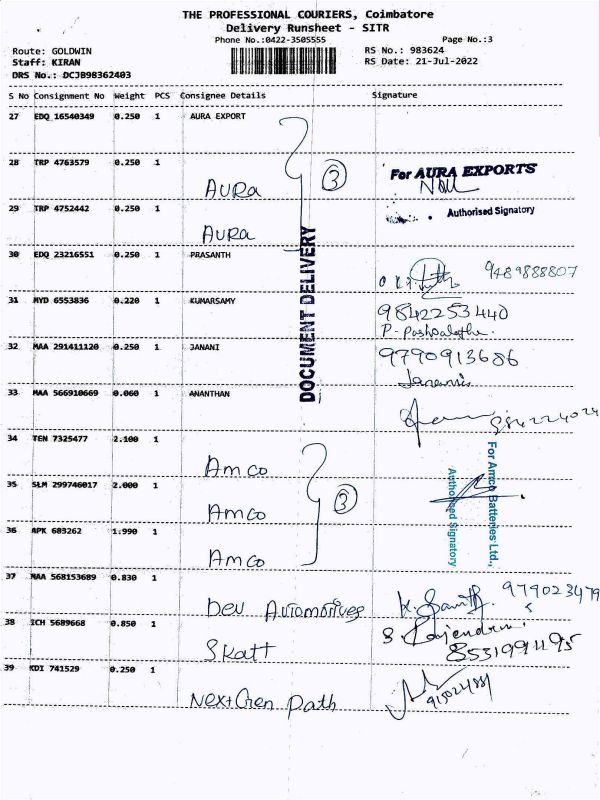 THE PROFESSIONAL COURIERS, Coimbatore
Delivery Runsheet - SITR
Phone No.:0422-3505555 Page No.:3
Route: GOLDWIN RS No.: 983624
Staff: KIRAN RS Date: 21-Jul-2022
DRS No.: DCJB98362403
S No Consignment No Weight PCS Consignee Details Signature
27 EDQ 16540349 0.250 1 AURA EXPORT
28 TRP 4763579 0.250 1
AURA
3
For AURA EXPORTS
Authorised Signatory
29 TRP 4752442 0.250 1
AURA
DOCUMENT DELIVERY
30 EDQ 23216551 0.250 1 PRASANTH
9489888807
31 MYD 6553836 0.220 1 KUMARSAMY
9842253440
32 MAA 291411120 0.250 1 JANANI
9790913686
Janani
33 MAA 566910669 0.060 1 ANANTHAN
34 TEN 7325477 2.100 1
Amco
35 SLM 299746017 2.000 1
Amco
3
For Amco Batteries Ltd.,
Authorised Signatory
36 APK 683262 1.990 1
Amco
37 MAA 568153689 0.830 1
Dev Automotives
38 ICH 5689668 0.850 1
Skatt
S. Rajendran
39 KDI 741529 0.250 1
NextGen Path